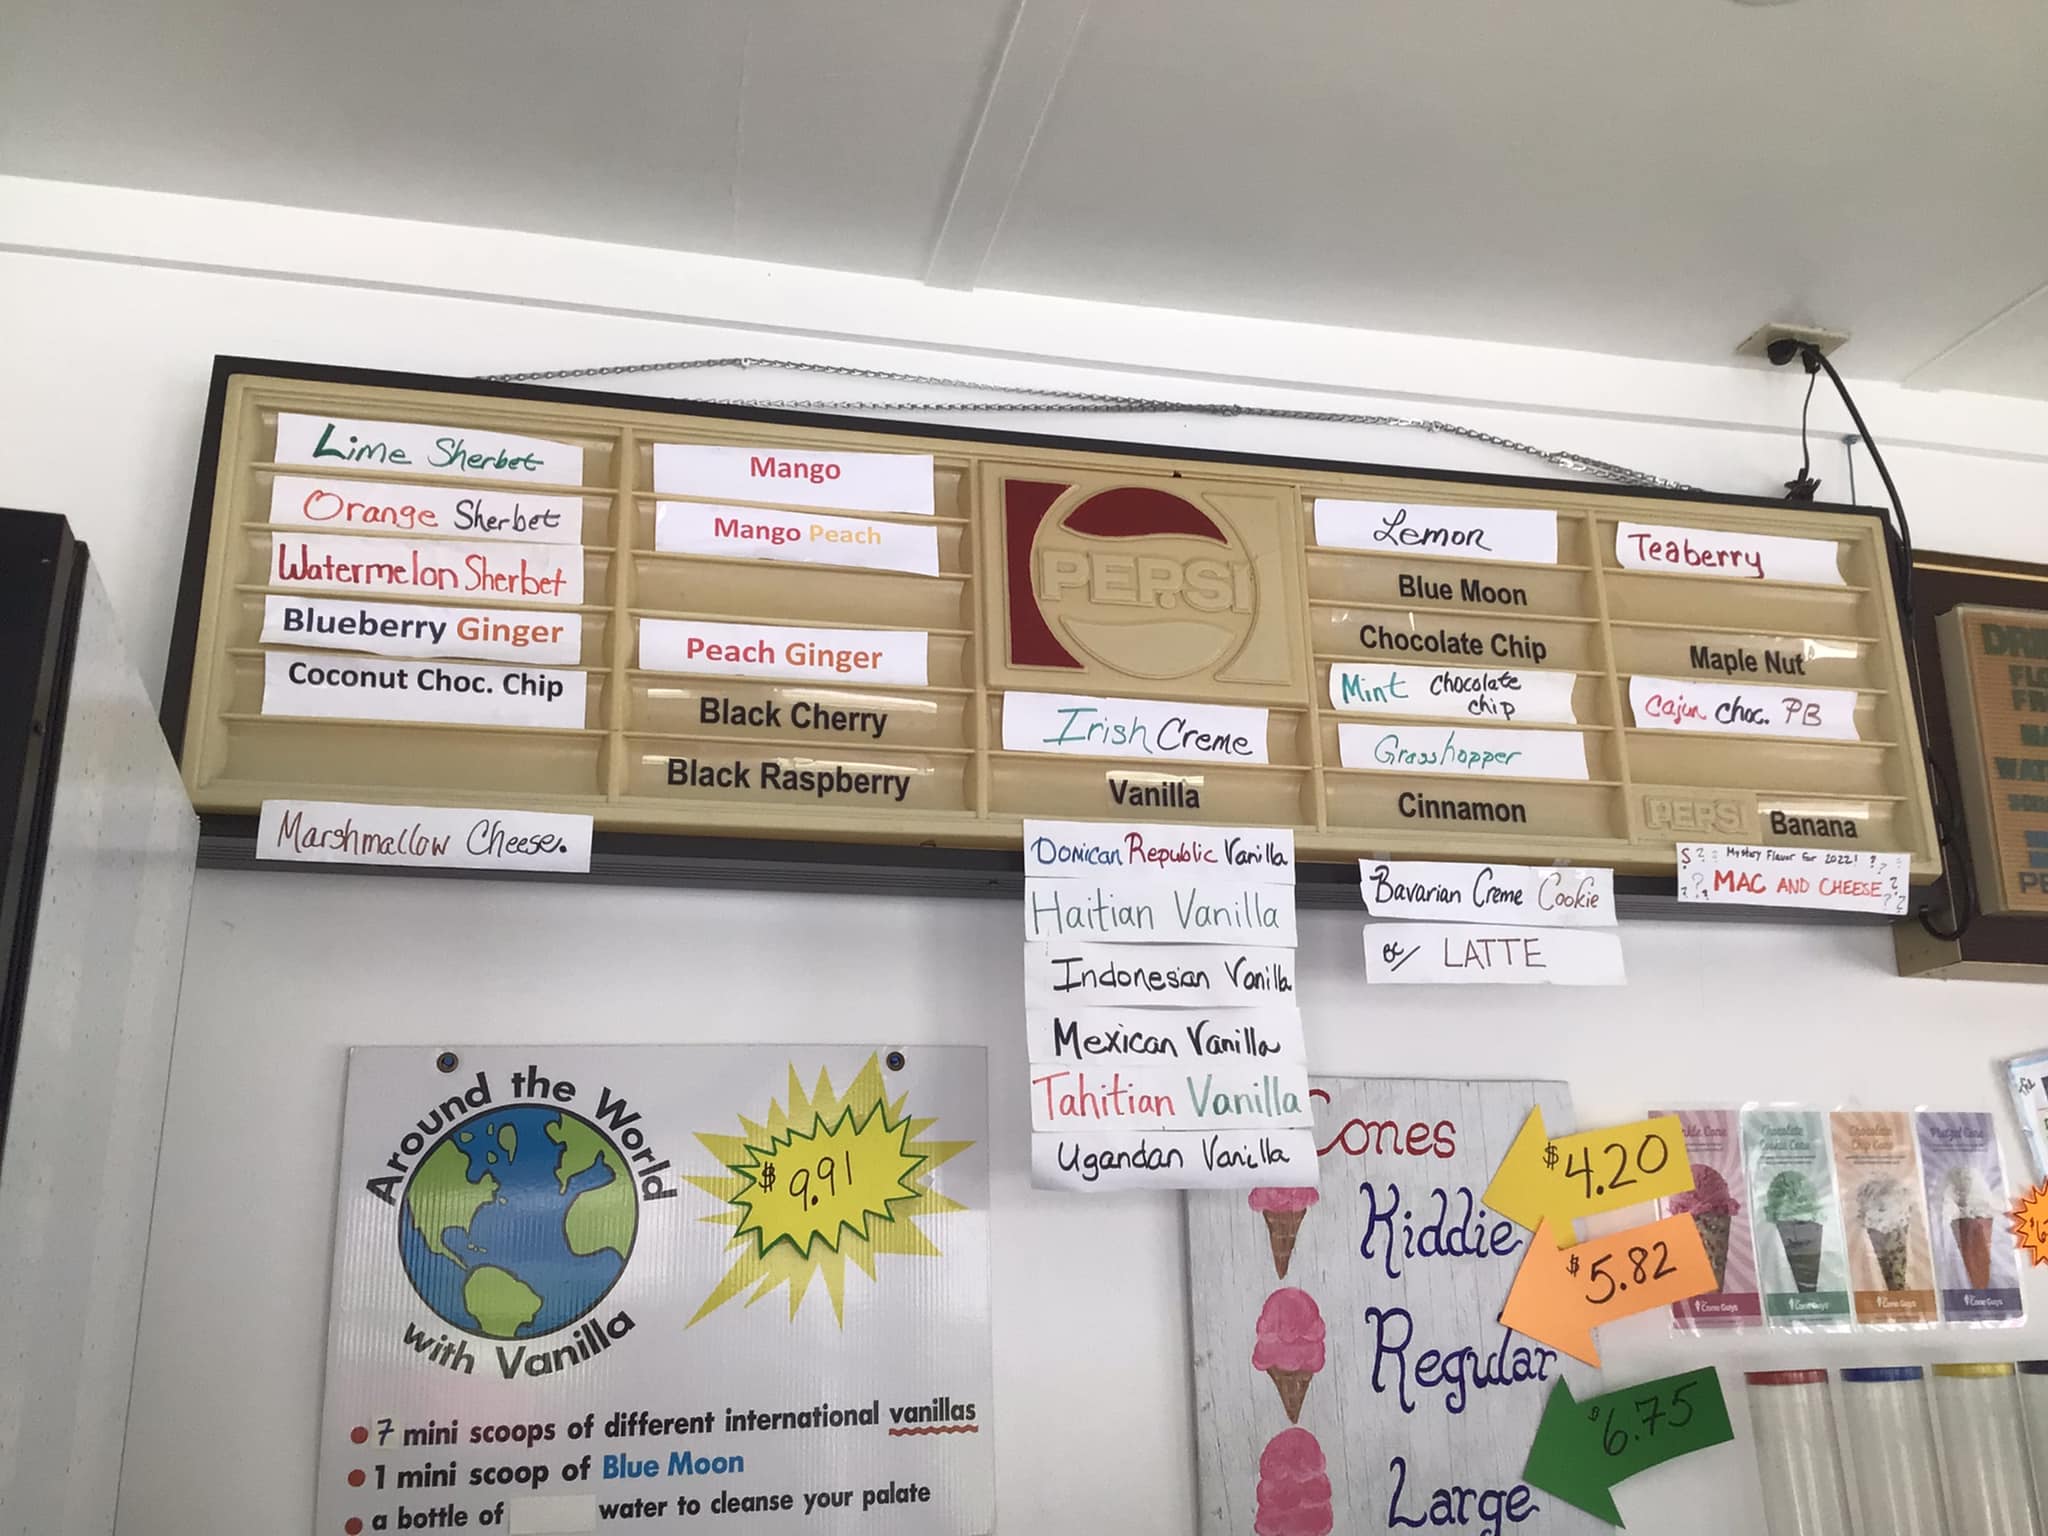 Lime Sherbet
Orange Sherbet
Watermelon Sherbet
Blueberry Ginger
Coconut Choc. Chip
Marshmallow Cheese.
Mango
Mango Peach
Peach Ginger
Black Cherry
Black Raspberry
PEPSI
Irish Creme
Vanilla
Domican Republic Vanilla
Haitian Vanilla
Indonesian Vanilla
Mexican Vanilla
Tahitian Vanilla
Ugandan Vanilla
Lemon
Blue Moon
Chocolate Chip
Mint Chocolate
chip
Grasshopper
Cinnamon
Bavarian Creme Cookie
LATTE
Teaberry
Maple Nut
Cajun choc. PB
PEPSI Banana
Mystery Flavor for 2022!
MAC AND CHEESE
Around the World
with Vanilla
$9.91
7 mini scoops of different international vanillas
1 mini scoop of Blue Moon
a bottle of water to cleanse your palate
Cones
Kiddie
$4.20
Regular
$5.82
Large
$6.75
Cone
Chocolate
Cookie Cone
Chocolate
Chip Cone
Pretzel Cone
Cone Guys
Cone Guys
Cone Guys
Cone Guys